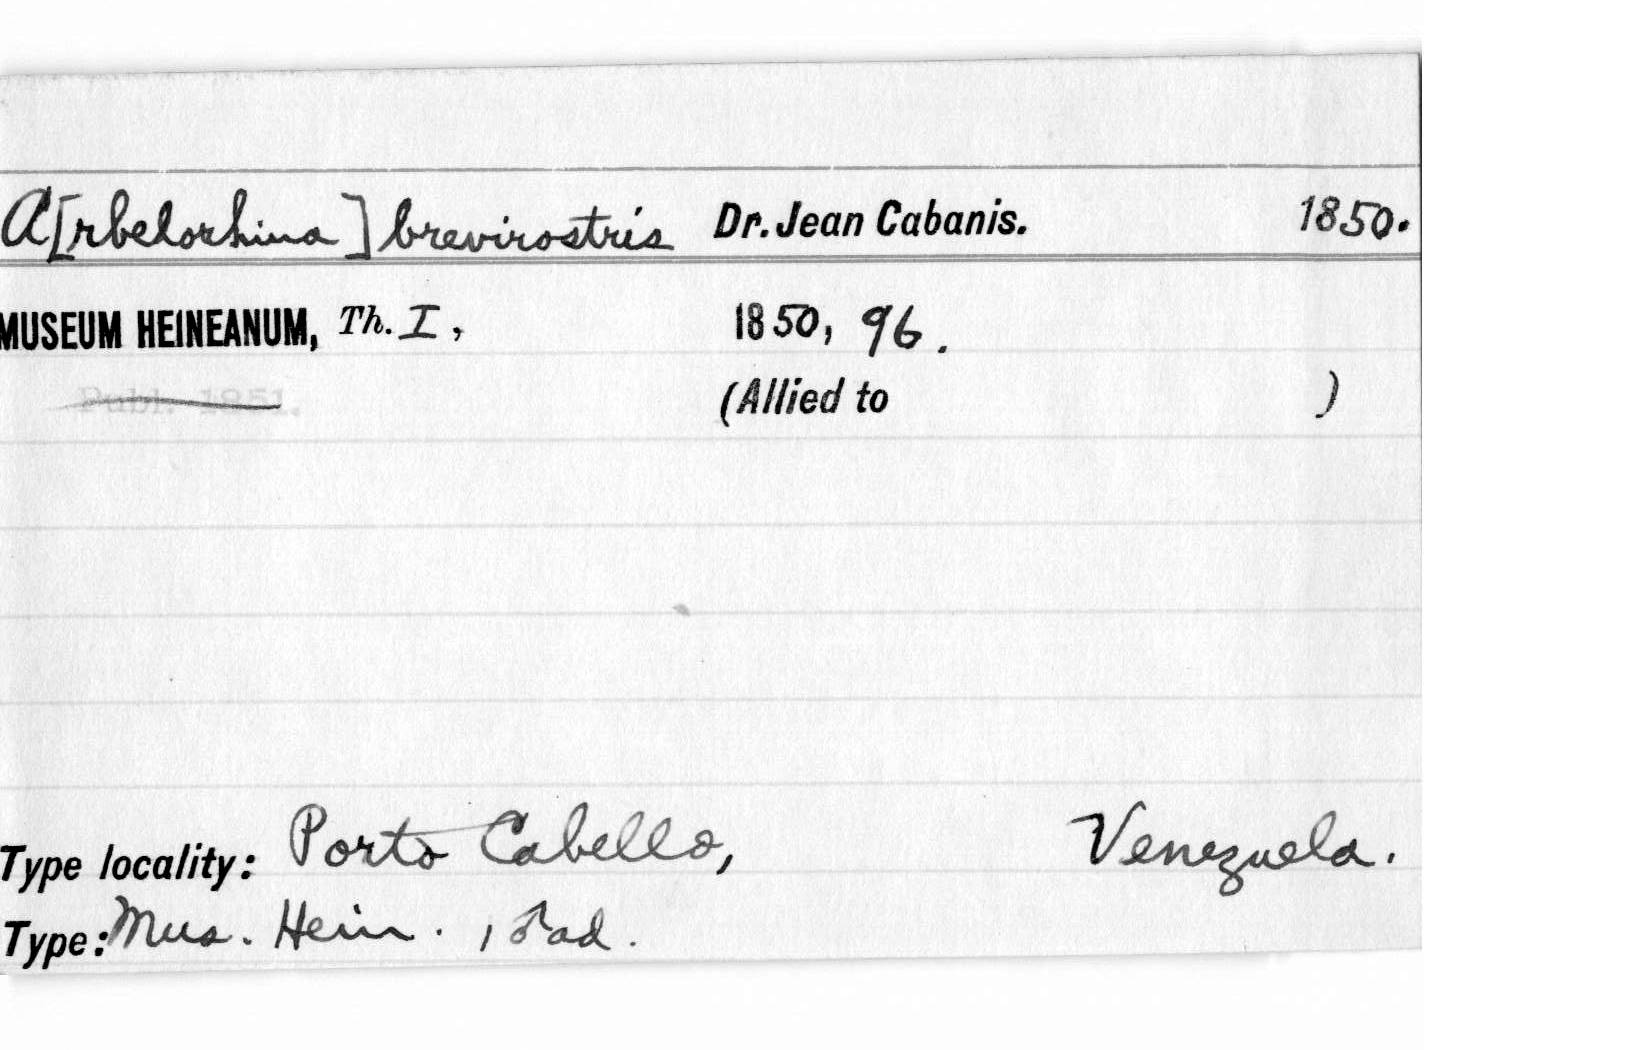 A[rbelorhina] brevirostris Dr. Jean Cabanis. 1850.
MUSEUM HEINEANUM, Th. I, 1850, 96.
Publ. 1851. (Allied to )
Type locality: Porto Cabello, Venezuela.
Type: Mus. Hein., ♂ ad.